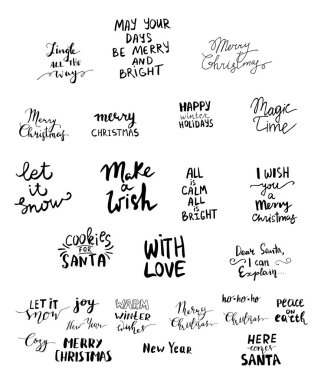 Jingle
ALL THE
way
MAY YOUR
DAYS
BE MERRY
AND
BRIGHT
Merry
Christmas
Merry
Christmas
merry
CHRISTMAS
HAPPY
winter
HOLIDAYS
Magic
Time
let
it
snow
Make
a
Wish
ALL
is
CALM
ALL
is
BRIGHT
I WISH
you
a
Merry
Christmas
cookies
FOR
SANTA
WITH
LOVE
Dear Santa,
I can
Explain...
LET IT
snow
joy
New Year
WARM
winter
wishes
Merry
Christmas
ho-ho-ho
Christmas
peace
ON
earth
Cozy
MERRY
CHRISTMAS
New Year
HERE
comes
SANTA